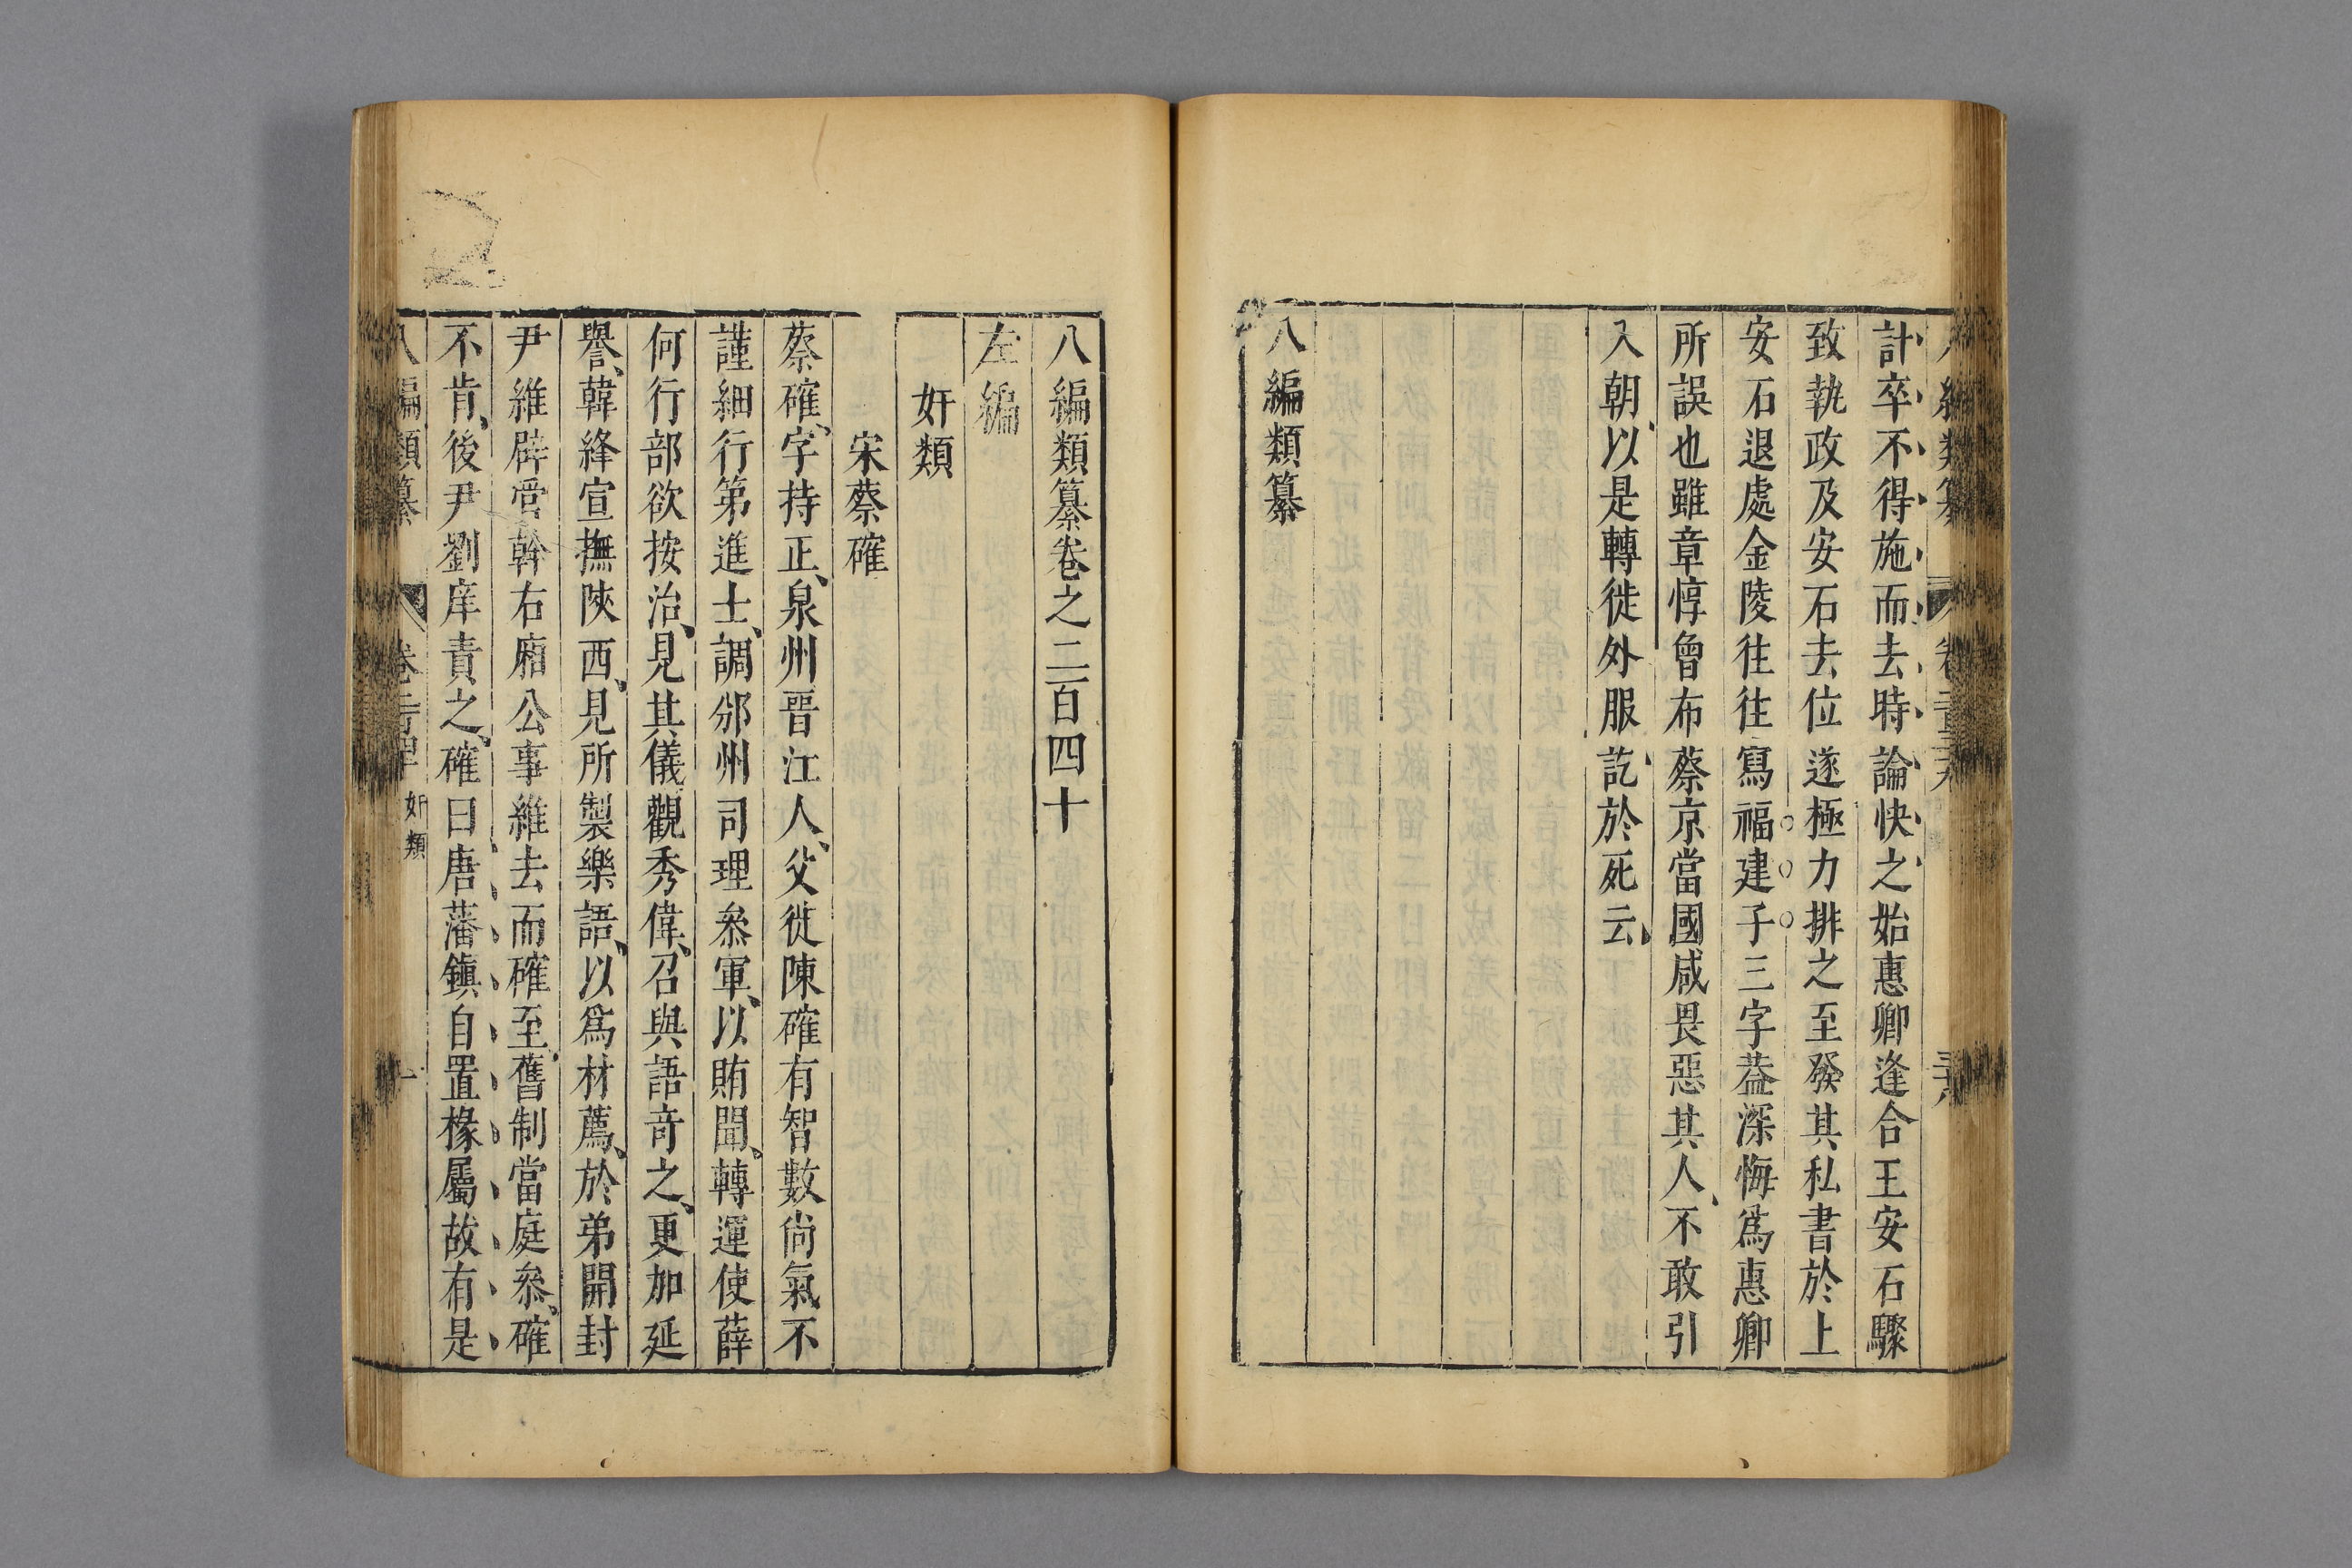 計卒不得施而去時論快之始惠卿逢合王安石驟
致執政及安石去位遂極力排之至發其私書於上
安石退處金陵往往寫福建子三字葢深悔爲惠卿
所誤也雖章惇曾布蔡京當國咸畏惡其人不敢引
入朝以是轉徙外服訖於死云
八編類纂
八編類纂卷之二百四十
左編
奸類
宋蔡確
蔡確字持正泉州晉江人父徙陳確有智數尙氣不
謹細行第進士調邠州司理叅軍以賄聞轉運使薛
何行部欲按治見其儀觀秀偉召與語奇之更加延
譽韓絳宣撫陝西見所製樂語以爲材薦於弟開封
尹維辟管幹右廂公事維去而確至舊制當庭叅確
不肯後尹劉庠責之確曰唐藩鎭自置椽屬故有是
八編類纂 卷 奸類 一